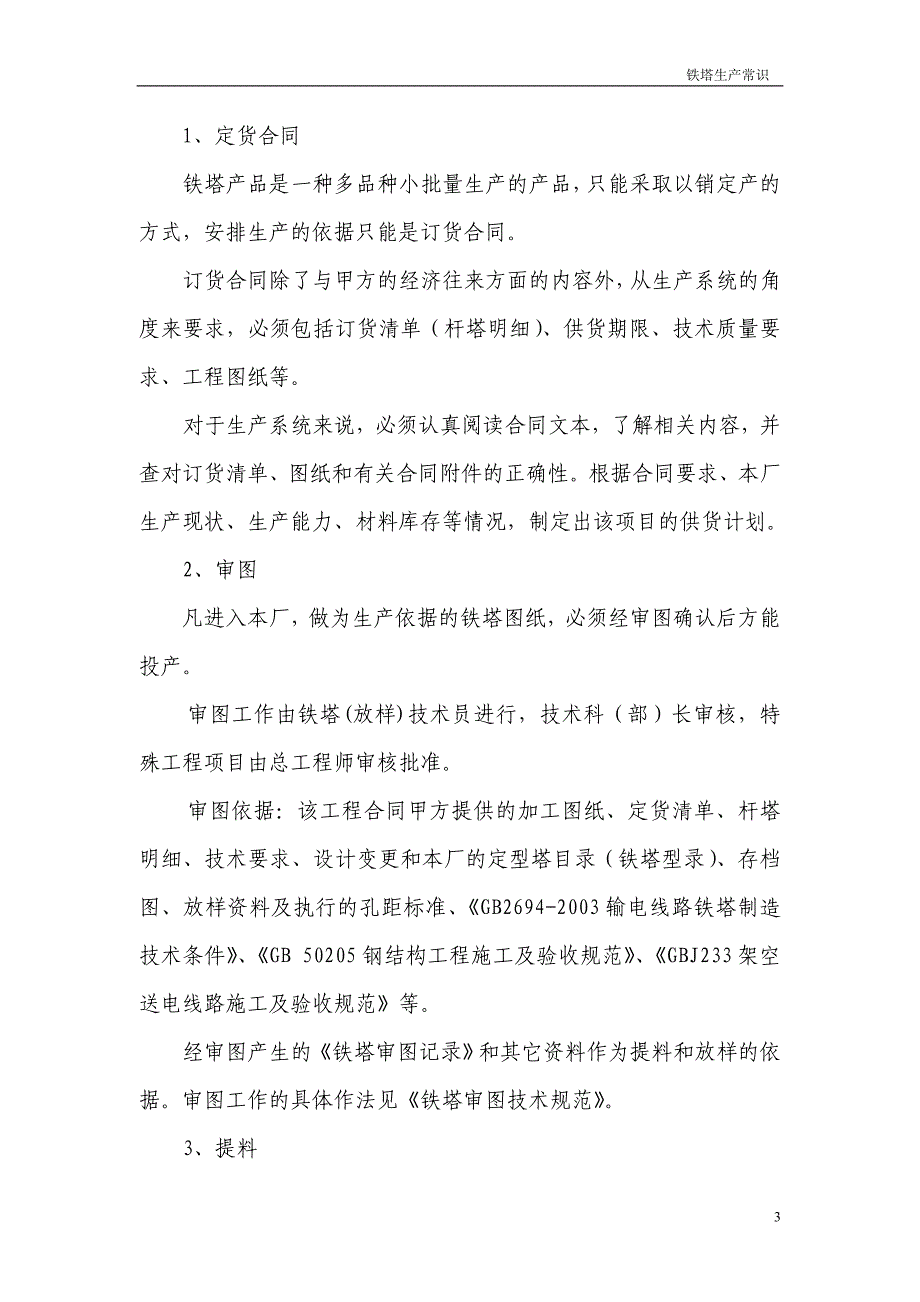 铁塔生产常识
1、定货合同
铁塔产品是一种多品种小批量生产的产品，只能采取以销定产的
方式，安排生产的依据只能是订货合同。
订货合同除了与甲方的经济往来方面的内容外，从生产系统的角
度来要求，必须包括订货清单（杆塔明细）、供货期限、技术质量要
求、工程图纸等。
对于生产系统来说，必须认真阅读合同文本，了解相关内容，并
查对订货清单、图纸和有关合同附件的正确性。根据合同要求、本厂
生产现状、生产能力、材料库存等情况，制定出该项目的供货计划。
2、审图
凡进入本厂，做为生产依据的铁塔图纸，必须经审图确认后方能
投产。
审图工作由铁塔(放样)技术员进行，技术科（部）长审核，特
殊工程项目由总工程师审核批准。
审图依据：该工程合同甲方提供的加工图纸、定货清单、杆塔
明细、技术要求、设计变更和本厂的定型塔目录（铁塔型录）、存档
图、放样资料及执行的孔距标准、《GB2694-2003输电线路铁塔制造
技术条件》、《GB 50205钢结构工程施工及验收规范》、《GBJ233架空
送电线路施工及验收规范》等。
经审图产生的《铁塔审图记录》和其它资料作为提料和放样的依
据。审图工作的具体作法见《铁塔审图技术规范》。
3、提料
3